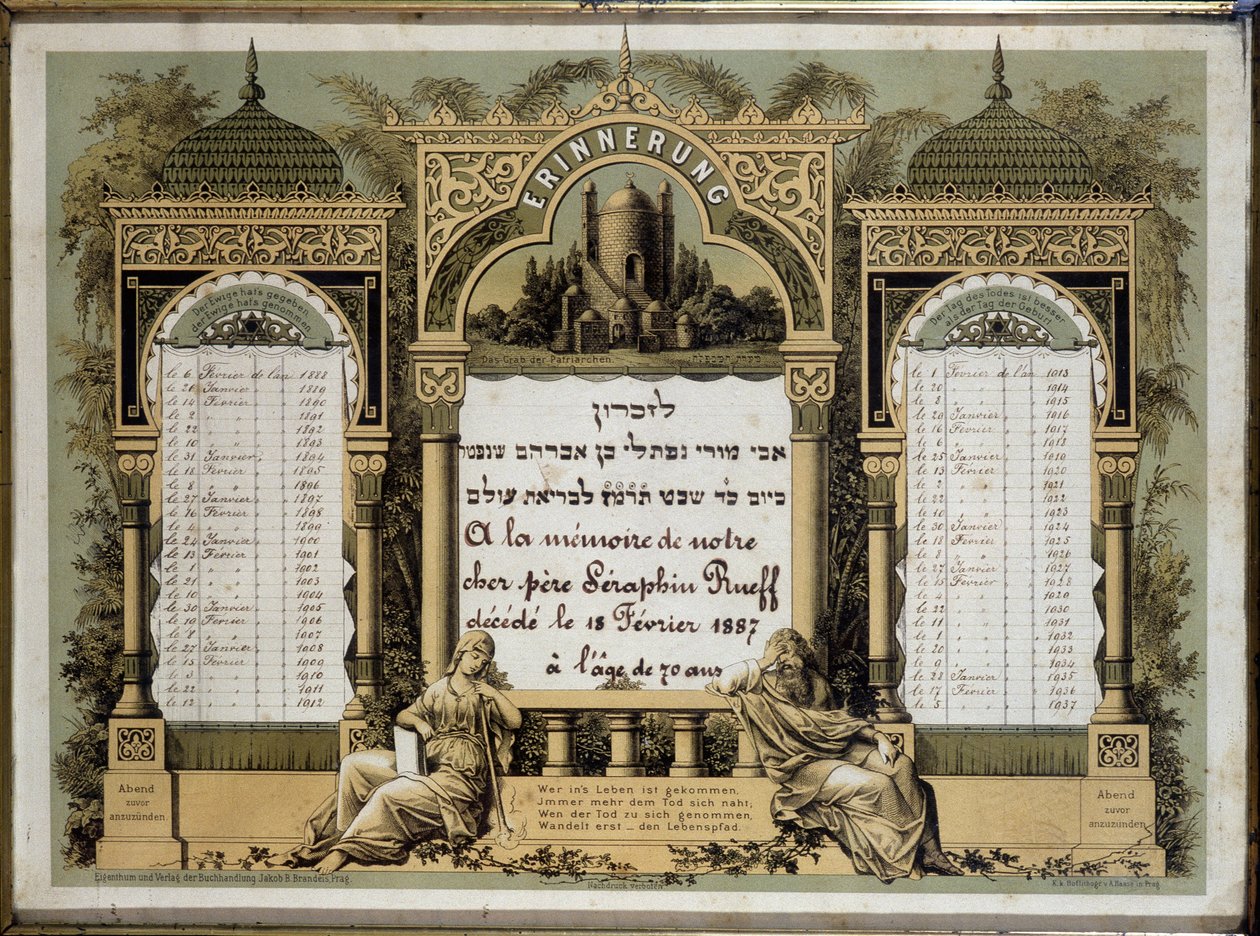 ERINNERUNG
Der Ewige hat's gegeben
der Ewige hat's genommen.
le 6 Février de l'an 1888
le 26 Janvier " " 1889
le 14 Février " " 1890
le 2 " " " 1891
le 22 " " " 1892
le 10 " " " 1893
le 31 Janvier " " 1894
le 18 Février " " 1895
le 8 " " " 1896
le 27 Janvier " " 1897
le 16 Février " " 1898
le 4 " " " 1899
le 24 Janvier " " 1900
le 13 Février " " 1901
le 1 " " " 1902
le 21 " " " 1903
le 10 " " " 1904
le 30 Janvier " " 1905
le 19 Février " " 1906
le 8 " " " 1907
le 27 Janvier " " 1908
le 15 Février " " 1909
le 3 " " " 1910
le 22 " " " 1911
le 12 " " " 1912
Das Grab der Patriarchen. מערת המכפלה
לזכרון
אבי מורי נפתלי בן אברהם שנפטר
ביום כד שבט תרמז לבריאת עולם
A la mémoire de notre
cher père Séraphin Rueff
décédé le 18 Février 1887
à l'âge de 70 ans
Der Tag des Todes ist besser
als der Tag der Geburt.
le 1 Février de l'an 1913
le 20 " " " 1914
le 8 " " " 1915
le 29 Janvier " " 1916
le 16 Février " " 1917
le 6 " " " 1918
le 25 Janvier " " 1919
le 13 Février " " 1920
le 2 " " " 1921
le 22 " " " 1922
le 10 " " " 1923
le 30 Janvier " " 1924
le 18 Février " " 1925
le 8 " " " 1926
le 27 Janvier " " 1927
le 15 Février " " 1928
le 4 " " " 1929
le 22 " " " 1930
le 11 " " " 1931
le 1 " " " 1932
le 20 " " " 1933
le 9 " " " 1934
le 28 Janvier " " 1935
le 17 Février " " 1936
le 5 " " " 1937
Abend
zuvor
anzuzünden.
Wer in's Leben ist gekommen,
Jmmer mehr dem Tod sich naht;
Wen der Tod zu sich genommen,
Wandelt erst _ den Lebenspfad.
Abend
zuvor
anzuzünden.
Eigenthum und Verlag der Buchhandlung Jakob B. Brandeis, Prag.
Nachdruck verboten.
K. k. Hoflithogr. v. A. Haase in Prag.